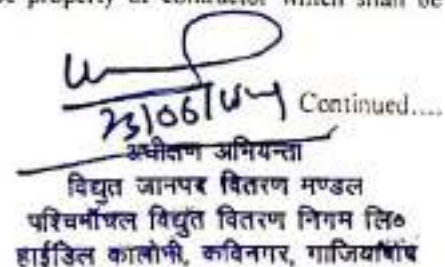 be property of contractor which shall be
23/06/04
Continued....
अधीक्षण अभियन्ता
विद्युत जानपद वितरण मण्डल
पश्चिमाँचल विद्युत वितरण निगम लि०
हाईडिल कालोनी, कविनगर, गाजियाबाद